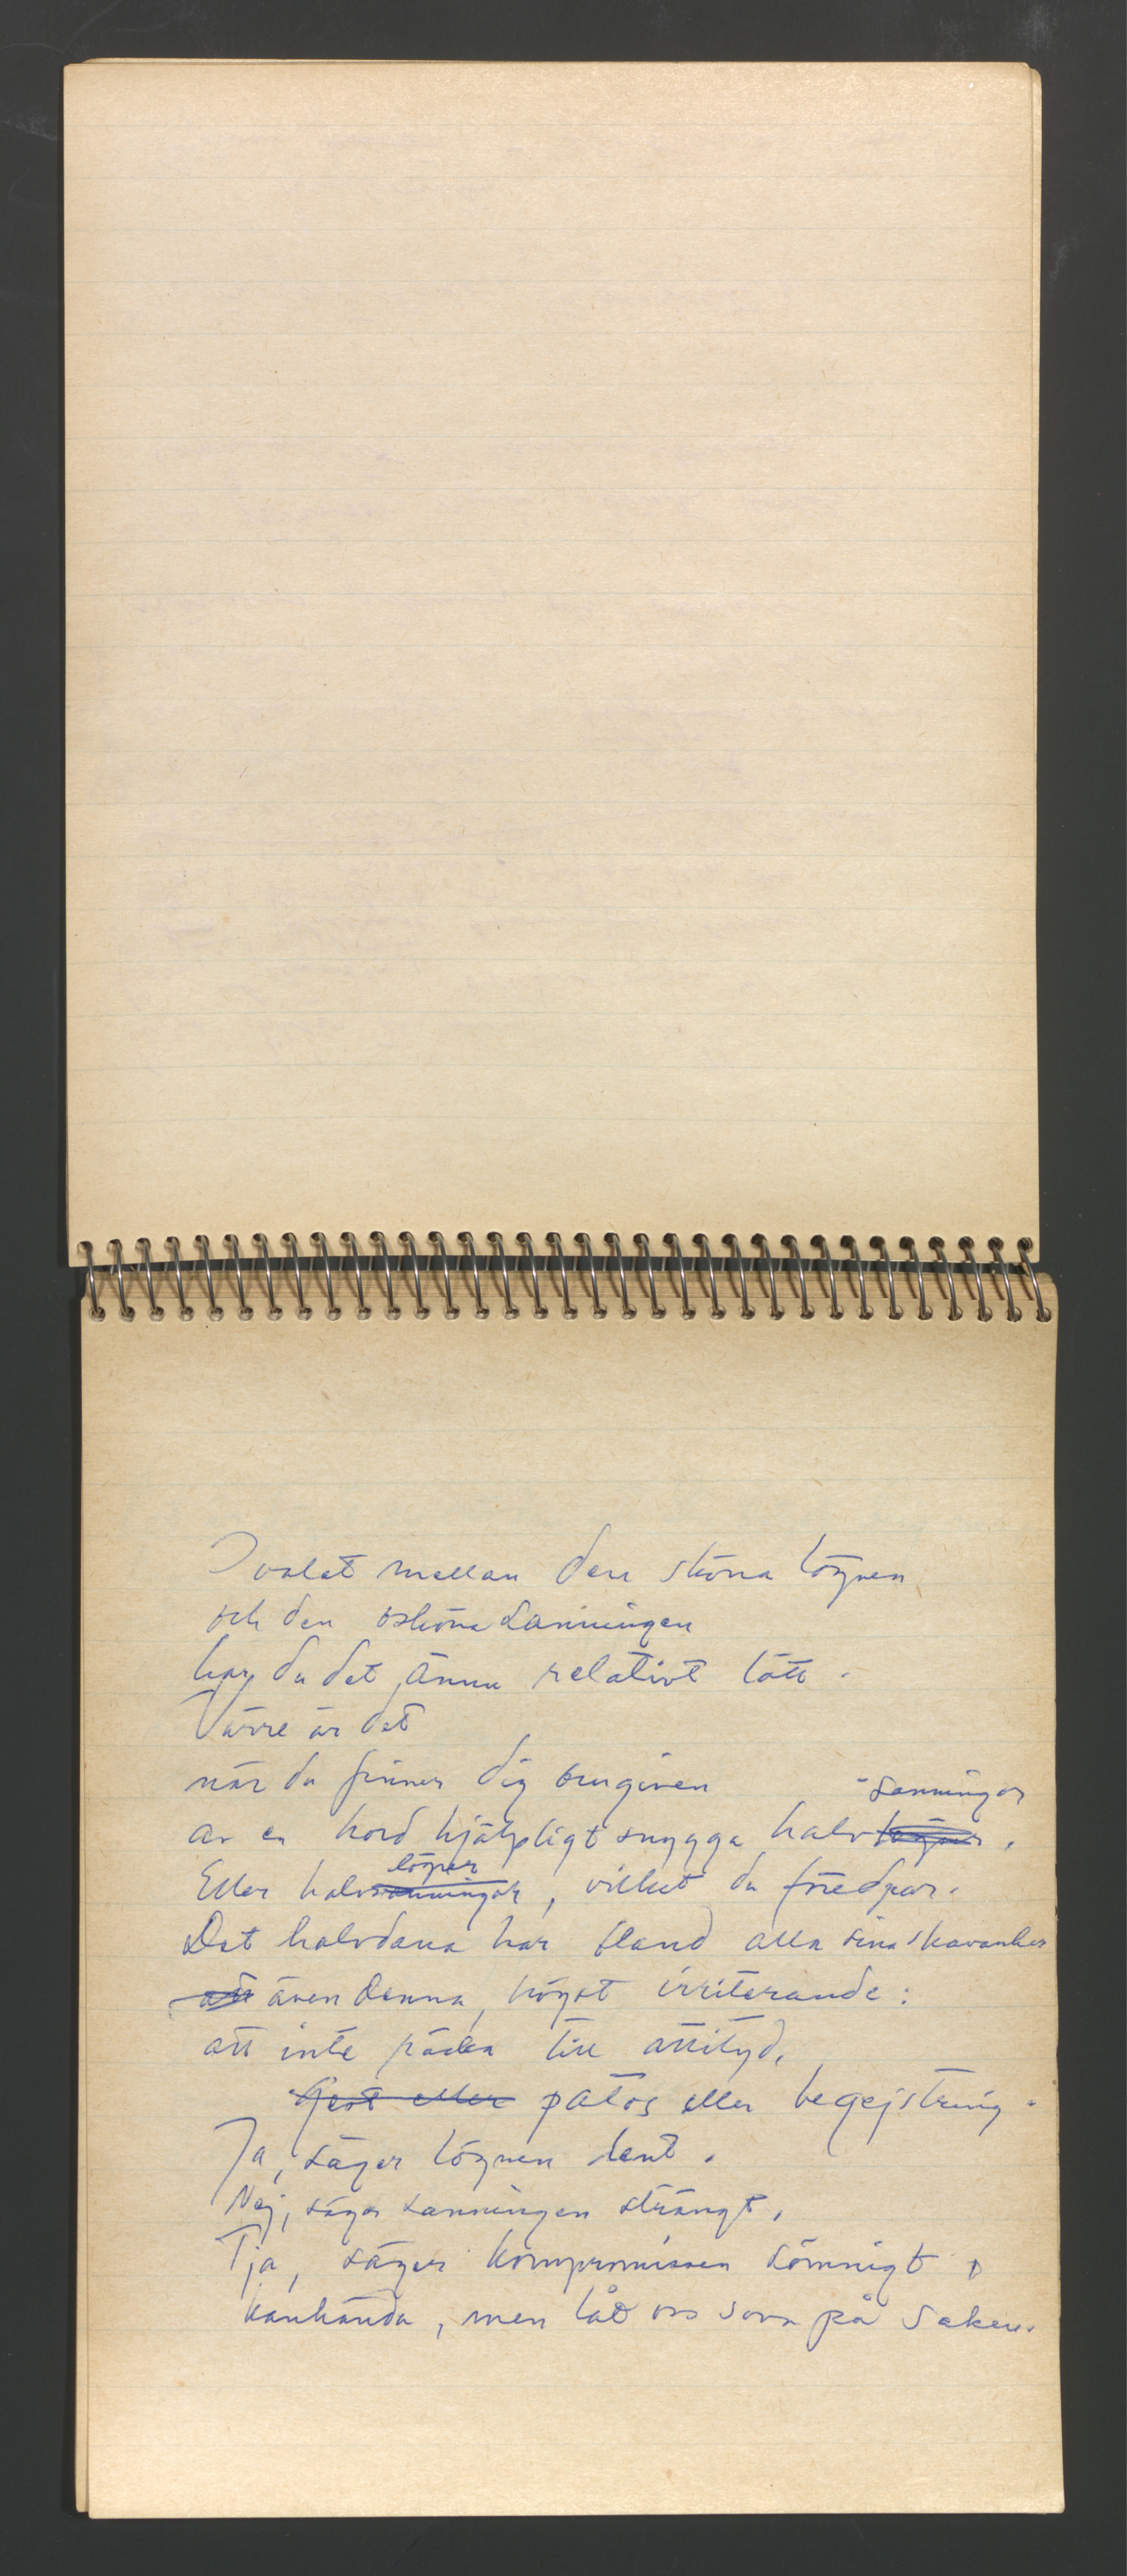 I valet mellan den sköna lögnen
och den osköna sanningen
har du det ännu relativt lätt.
Värre är det
när du finner dig omgiven
-sanningar
av en hord hjälpligt snygga halvlögner.
lögner
Eller halvsanningar, vilket du föredrar.
Det halvdana har bland alla sina skavanker
att även denna, högst irriterande:
att inte räcka till attityd,
Gest eller patos eller begejstring.
Ja, säger lögnen lent.
Nej, säger sanningen strängt,
Tja, säger kompromissen sömnigt,
kanhända, men låt oss sova på saken.